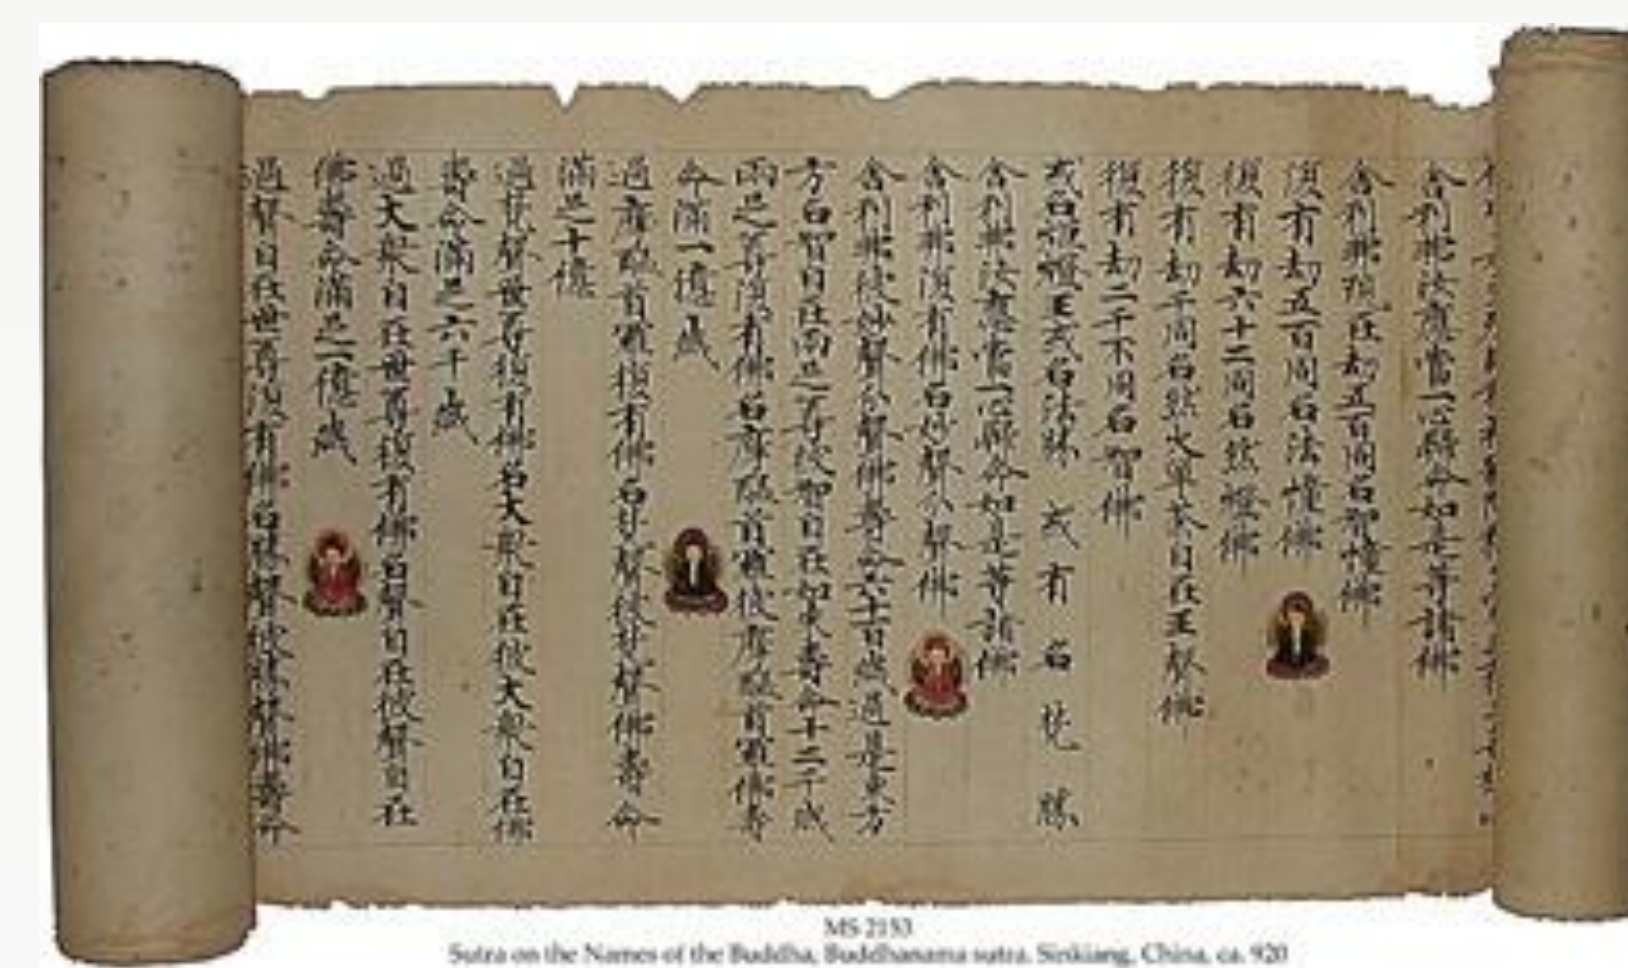 舍利弗汝應當一心歸命如是等諸佛
舍利弗現在劫五百同名智幢佛
復有劫五百同名法幢佛
復有劫六十二同名然燈佛
復有劫千同名然火單荼自在王聲佛
復有劫二千不同名智佛
或名燈王或名法勝 或有名梵勝
舍利弗汝應當一心歸命如是等諸佛
舍利弗復有佛名妙聲分聲佛
舍利弗彼妙聲分聲佛壽命六十百歲過是東方
方名智自在兩足之尊彼智自在如來壽命十二千歲
兩足尊復有佛名摩醯首羅彼摩醯首羅佛壽
命滿一億歲
過摩醯首羅復有佛名梵聲彼梵聲佛壽命
滿足十億
過梵聲世尊復有佛名大眾自在彼大眾自在佛
壽命滿足六千歲
過大眾自在世尊復有佛名聲自在彼聲自在
佛壽命滿足一億歲
過聲自在世尊復有佛名勝聲彼勝聲佛壽命
MS 2153
Sutra on the Names of the Buddha, Buddhanama sutra. Sinkiang, China, ca. 920